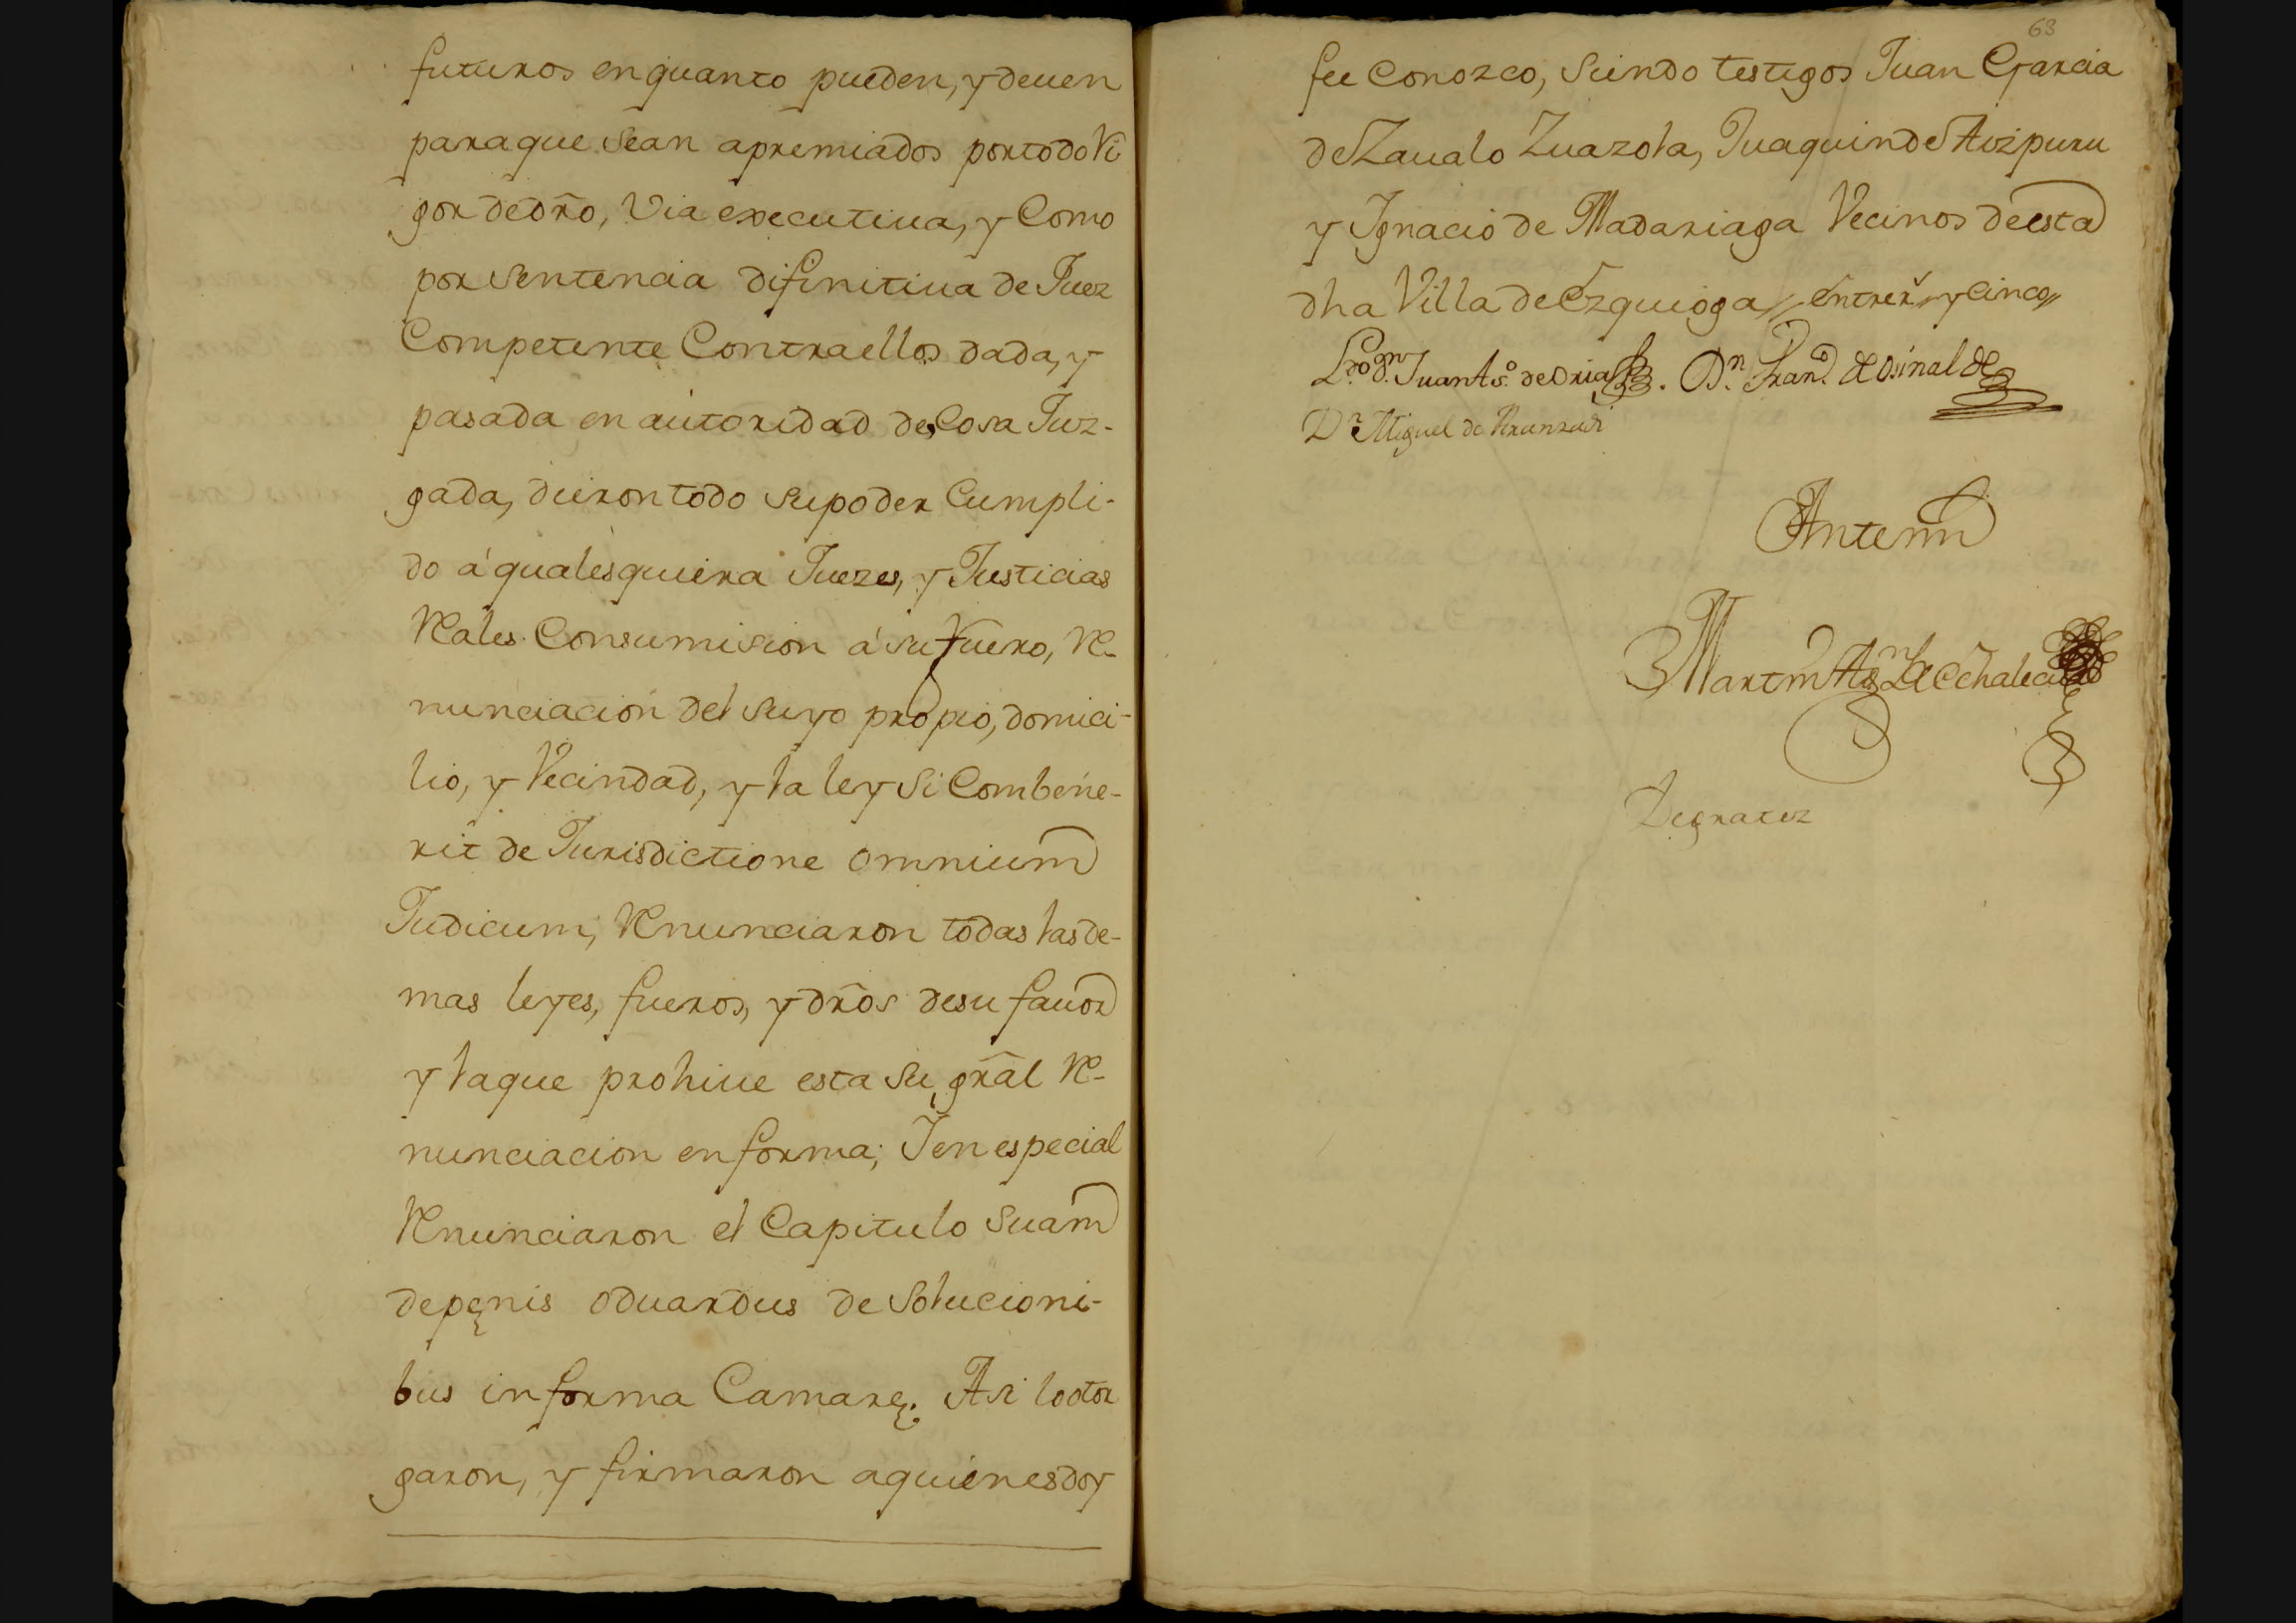 futuros en quanto pueden, y deuen
para que sean apremiados por todo Vi
gor de dr̃o, Via executiua, y Como
por Sentencia difinitiua de Juez
Competente Contra ellos dada, y
pasada en autoridad de Cosa Juz-
gada, dieron todo su poder Cumpli-
do á qualesquiera Juezes, y Justicias
Reales Consumision á su fuero, Re-
nunciacion del suyo propio, domici-
lio, y Vecindad, y la ley Si Combene-
rit de Jurisdictione omnium
Judicum; Renunciaron todas las de-
mas leyes, fueros, y dr̃os de su fauor
y la que prohiue esta su gr̃al Re-
nunciacion en forma; Y en especial
Renunciaron el Capitulo Suam
de pęnis oduardus de Solucioni-
bus in forma Camarę. Asi lo otor
garon, y firmaron a quienes doy
63
fee Conozco, Siendo testigos Juan Garcia
de Zaualo Zuazola, Juaquin de Aizpuru
y Ignacio de Madariaga Vecinos de esta
dha Villa de Ezquioga // entrer.s y cinco //
Juan As.º de Oria. Dn. Fran.co de Osinalde
Dn. Miguel de
Antemi
Martin Ag.n de Echalecu
Degratis